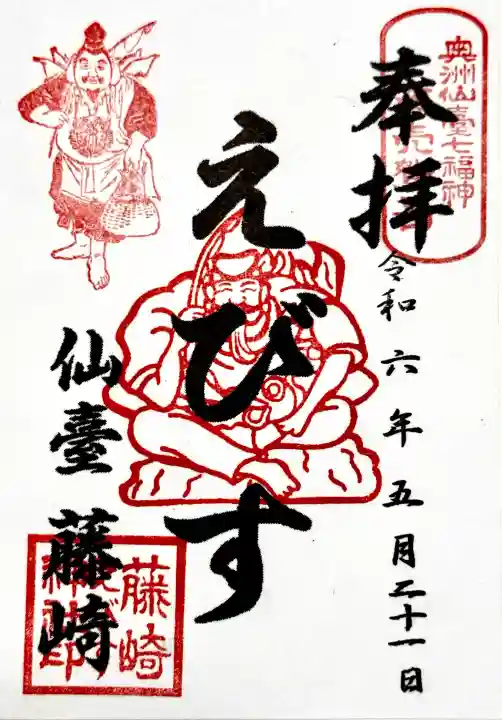 奉拝
奥州仙臺七福神
令和六年五月二十一日
えびす
仙臺藤崎
藤崎